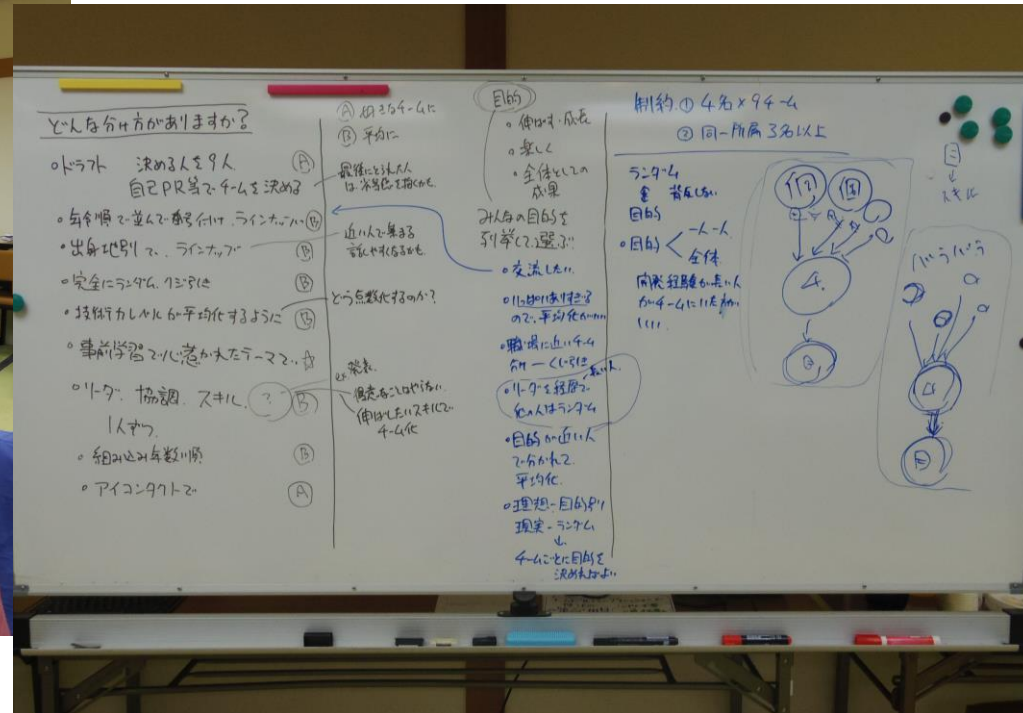 どんな分け方がありますか?
・ドラフト 決める人を9人 Ⓐ
自己PR等でチームを決める
・年令順で並んで番号付け、ラインナップ Ⓑ
・出身地別で、ラインナップ Ⓑ
・完全にランダム、クジ引き Ⓑ
・技術力レベルが平均化するように Ⓑ
・事前学習で心惹かれたテーマで、☆
・リーダ、協調、スキル、? Ⓑ
1人ずつ
・組み込み年数順 Ⓑ
・アイコンタクトで Ⓐ
Ⓐ 好きなチームに
Ⓑ 平均に
最後にとられた人
は、劣等感を抱くかも。
近い人で集まる
話しやすくなるかも。
どう点数化するのか?
ex 発表
得意なことはやらない
伸ばしたいスキルで
チーム化
目的
・伸ばす・成長
・楽しく
・全体としての
成果
みんなの目的を
列挙して、選ぶ!!
・交流したい、
・いっぱいありすぎる
ので、平均化
・職場に近いチーム
くじ引き
・リーダを経歴で 長い人
他の人はランダム
・目的が近い人
で分かれて、
平均化、
・理想-目的別
現実-ランダム
↓
チームごとに目的を
決めればよい
制約 ① 4名×9チーム
② 同一所属 3名以上
ランダム
目的
・目的 < 一人一人
全体
開発経験が長い人
がチームにいた方がいい
個 個
4
スキル
バラバラ